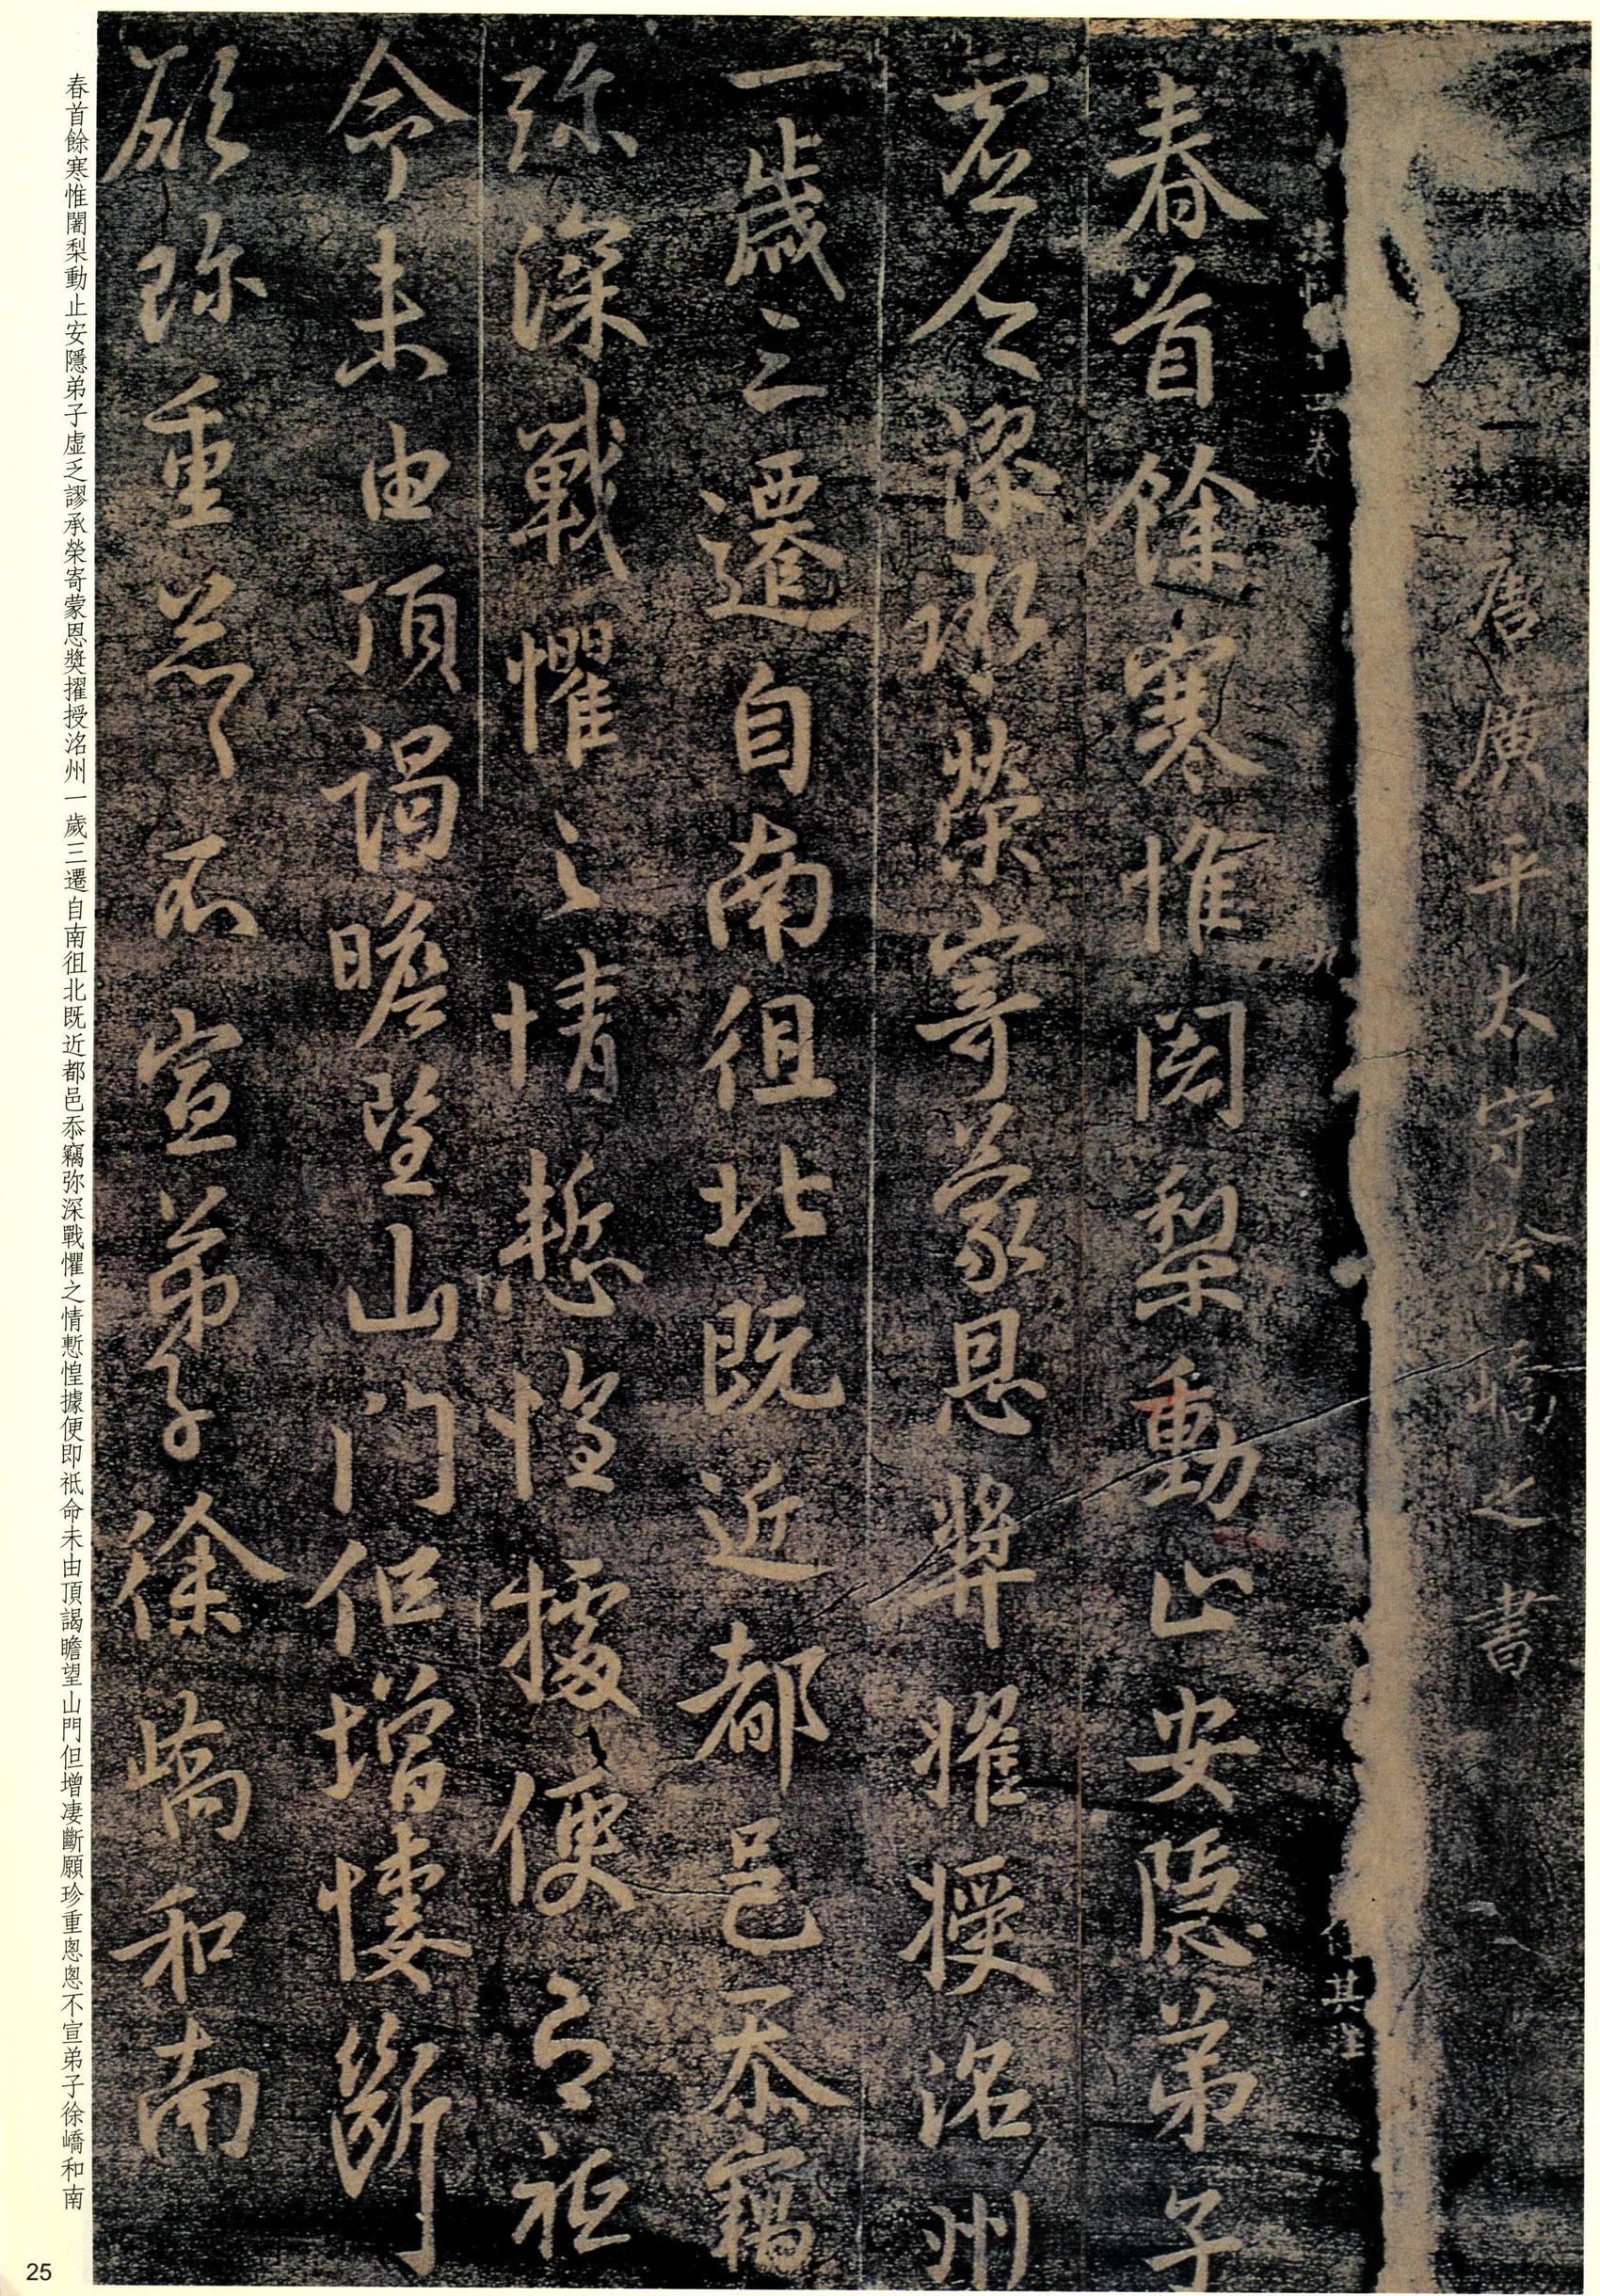 唐廣平太守徐嶠之書
春首餘寒惟闍梨動止安隱弟子
虛乏謬承榮寄蒙恩獎擢授洺州
一歲三遷自南徂北既近都邑忝竊
弥深戰懼之情慙惶據便即祗
命未由頂謁瞻望山門但增悽斷
願珍重悤悤不宣弟子徐嶠和南
春首餘寒惟闍梨動止安隱弟子虛乏謬承榮寄蒙恩獎擢授洺州一歲三遷自南徂北既近都邑忝竊弥深戰懼之情慙惶據便即祗命未由頂謁瞻望山門但增凄斷願珍重悤悤不宣弟子徐嶠和南
25